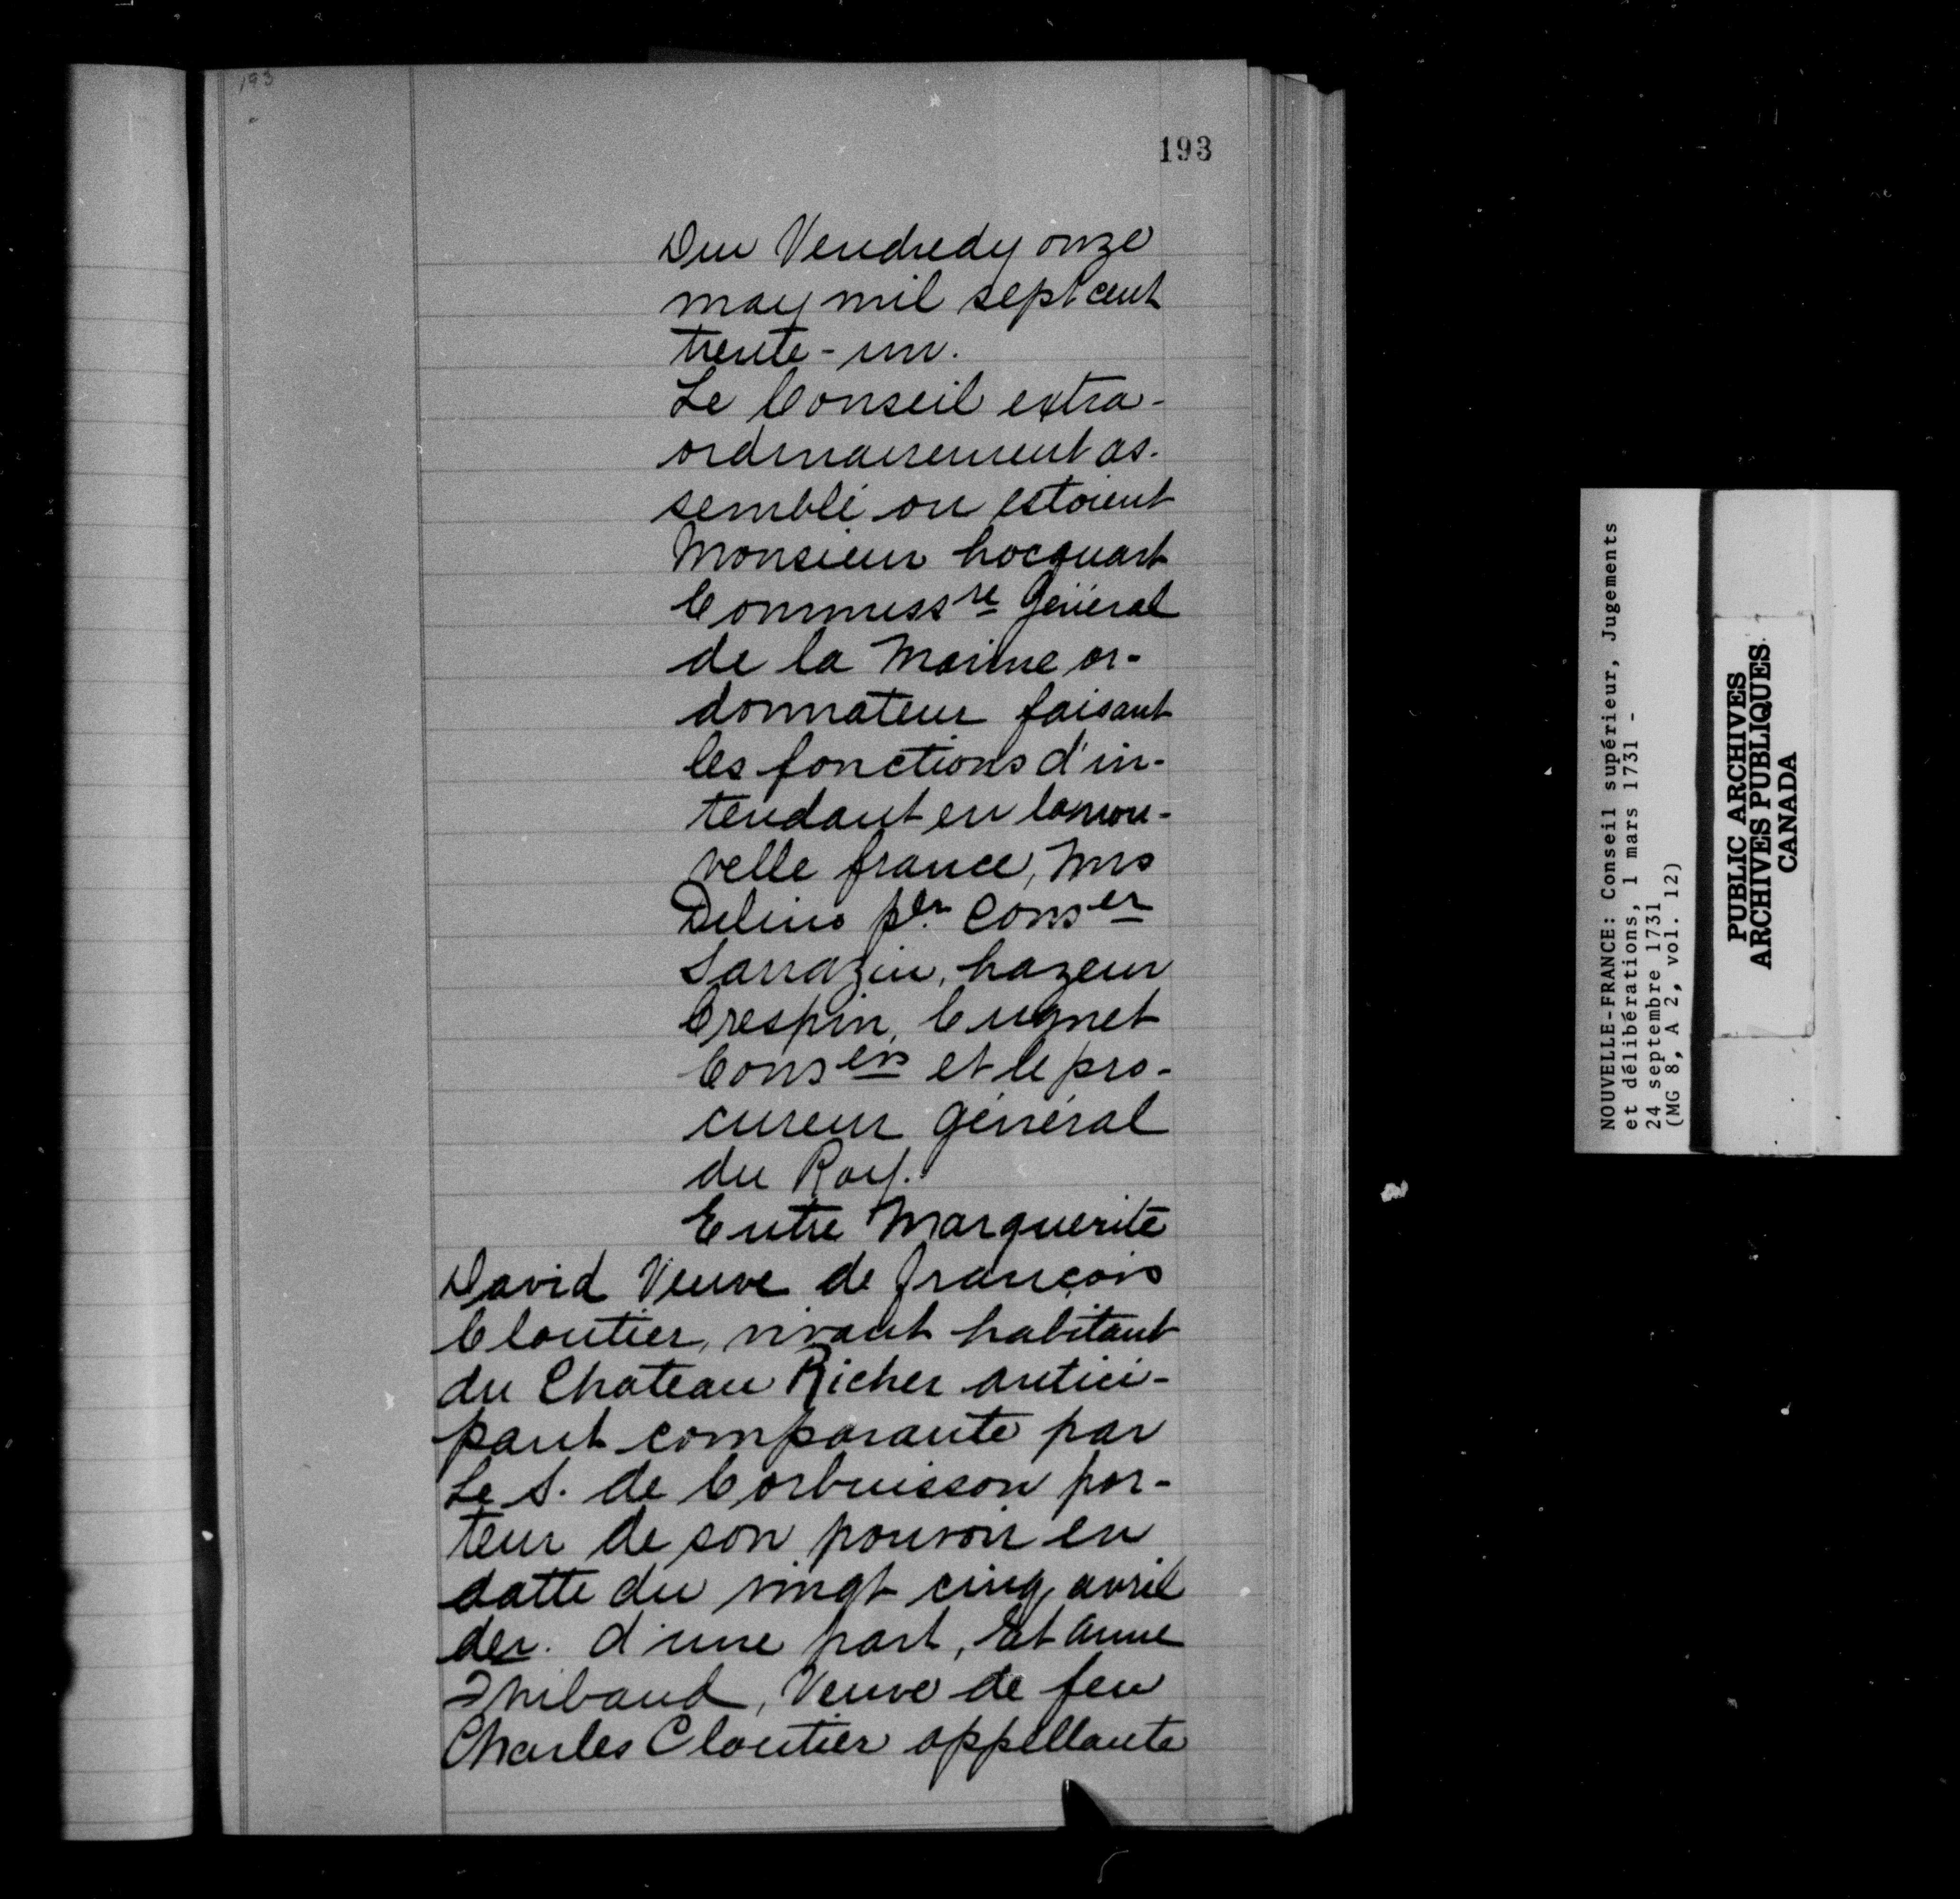 193
193
Du Vendredy onze
may mil sept cent
trente-un.
Le Conseil extra-
ordinairement as-
semblé ou estoient
Monsieur hocquart
Commissre Général
de la Marine or-
donnateur faisant
les fonctions d'in-
tendant en la nou-
velle france, Mrs
Delino per Conser
Sarrazin, hazeur
Crespin, Cugnet
Consers et le pro-
cureur général
du Roy.
Entre Marguerite
David Veuve de françois
Cloutier, vivant habitant
du Chateau Richer antici-
pant comparante par
Le S. de Corbuisson por-
teur de son pouvoir en
datte du vingt cinq avril
der. d'une part, Et anne
Thibaud, Veuve de feu
Charles Cloutier appellante
NOUVELLE-FRANCE: Conseil supérieur, Jugements
et délibérations, 1 mars 1731 -
24 septembre 1731
(MG 8, A 2, vol. 12)
PUBLIC ARCHIVES
ARCHIVES PUBLIQUES
CANADA